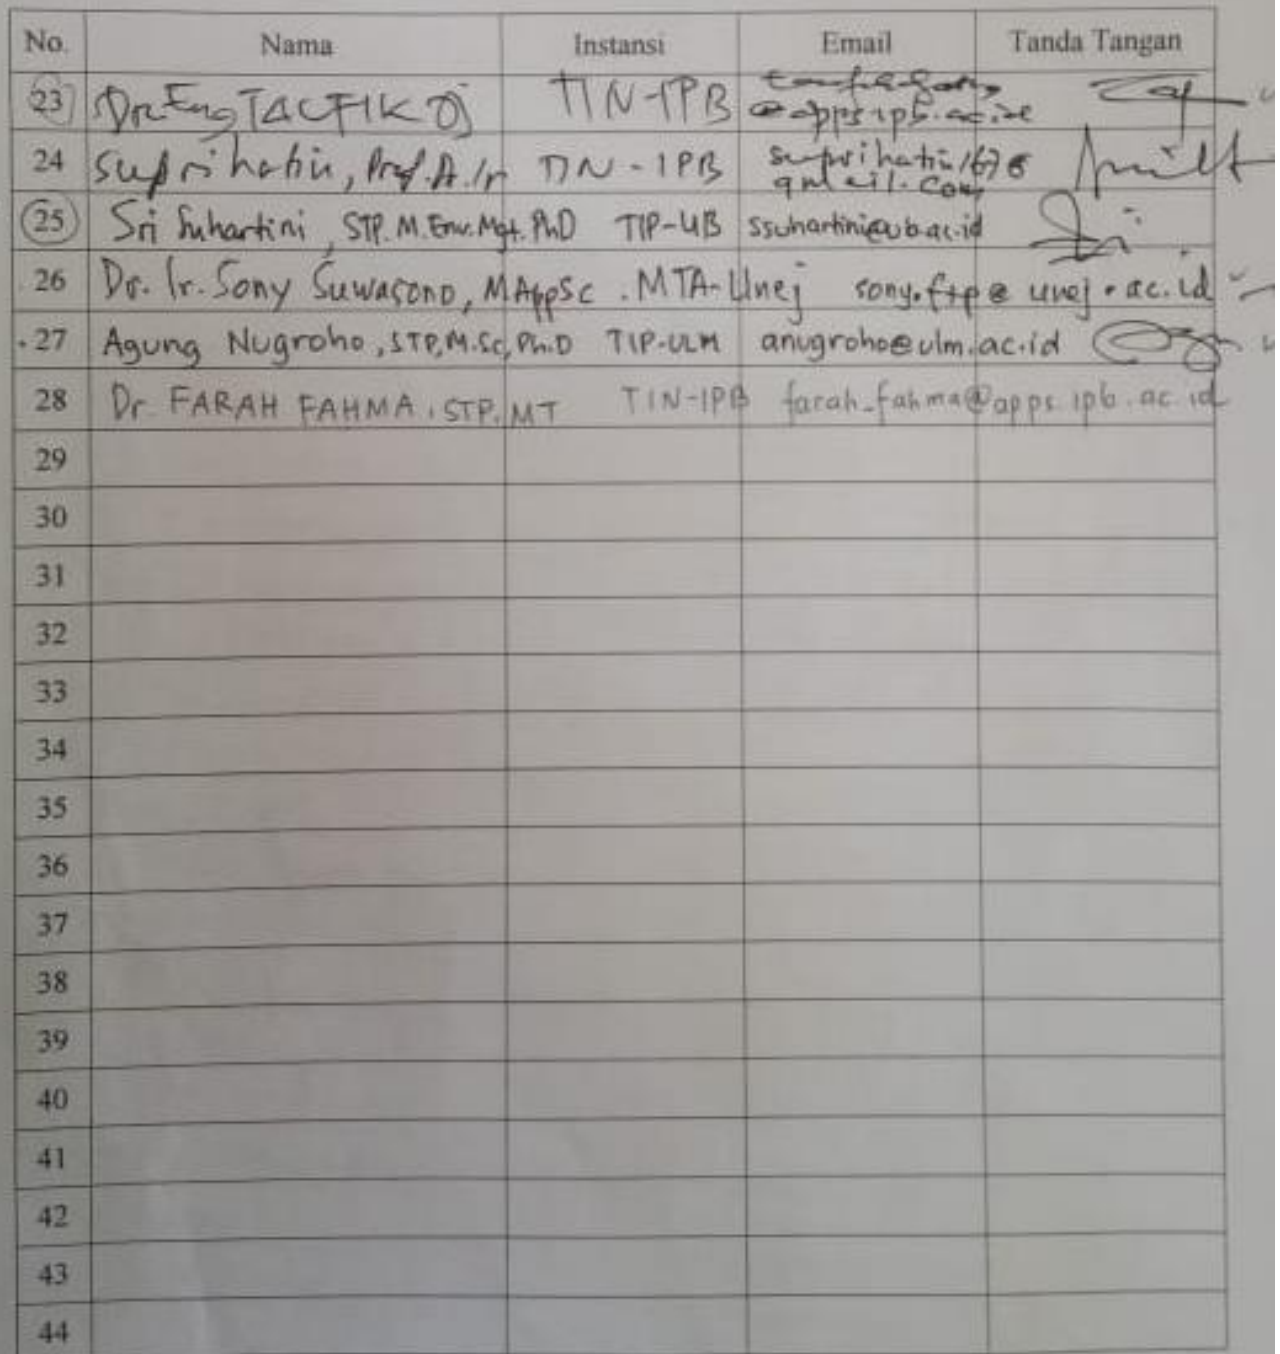 No. Nama Instansi Email Tanda Tangan
23 Dr. Eng TAUFIK TIN-IPB
@apps.ipb.ac.id
24 Suprihatin, Prof. Dr. Ir TIN-IPB suprihatin167@
gmail.com
25 Sri Suhartini, STP. M.Env.Mgt. PhD TIP-UB ssuhartini@ub.ac.id
26 Dr. Ir. Sony Suwasono, MAppSc. MTA-Unej sony.ftp@unej.ac.id
27 Agung Nugroho, STP, M.Sc, Ph.D TIP-ULM anugroho@ulm.ac.id
28 Dr. FARAH FAHMA, STP, MT TIN-IPB farah_fahma@apps.ipb.ac.id
29
30
31
32
33
34
35
36
37
38
39
40
41
42
43
44